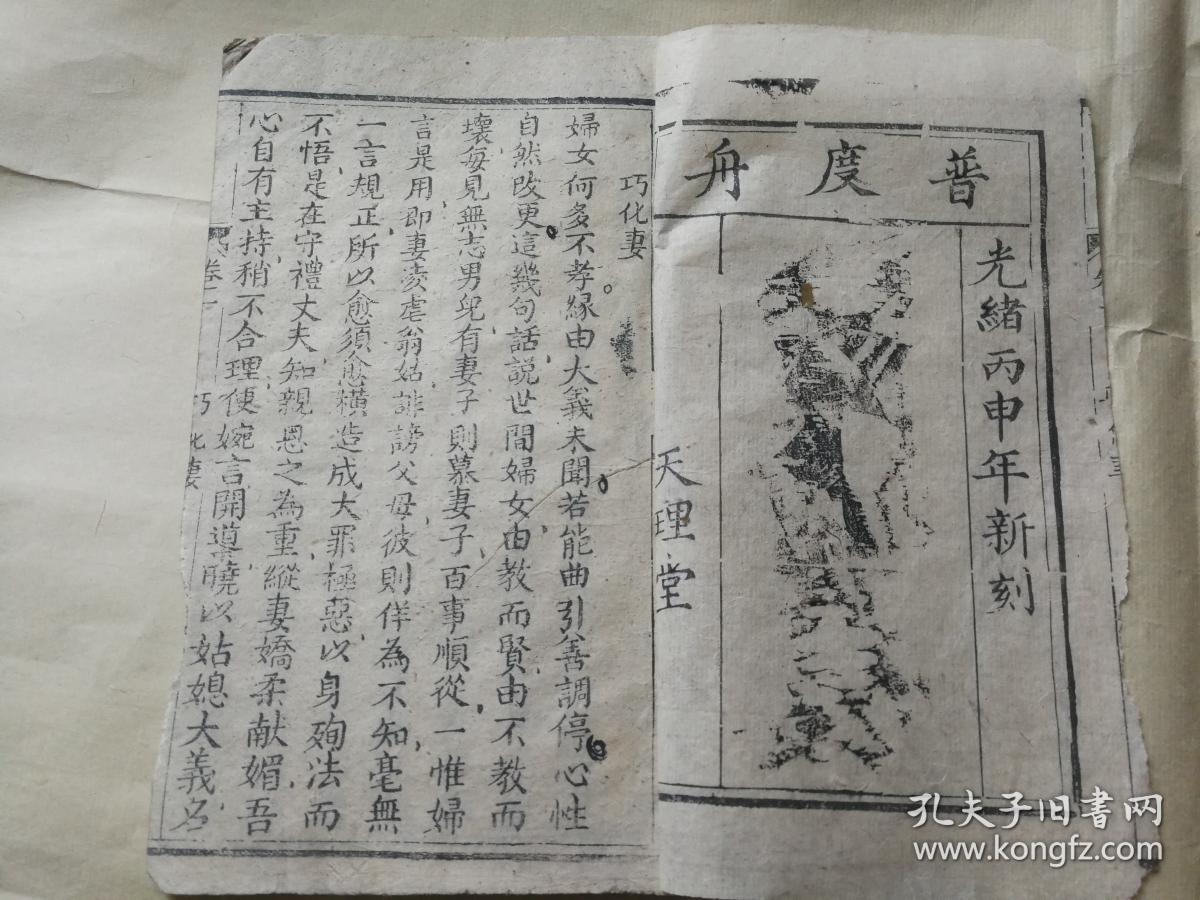 普度舟
光緒丙申年新刻
天理堂
巧化妻
婦女何多不孝緣由大義未聞若能曲引善調停心性
自然改更這幾句話説世間婦女由教而賢由不教而
壞每見無志男兒有妻子則慕妻子百事順從一惟婦
言是用即妻凌虐翁姑誹謗父母彼則佯為不知毫無
一言規正所以愈須愈橫造成大罪極惡以身殉法而
不悟是在守禮丈夫知親恩之為重縱妻嬌柔献媚吾
心自有主持稍不合理便婉言開導曉以姑媳大義名
卷二 巧化妻
孔夫子旧书网
www.kongfz.com